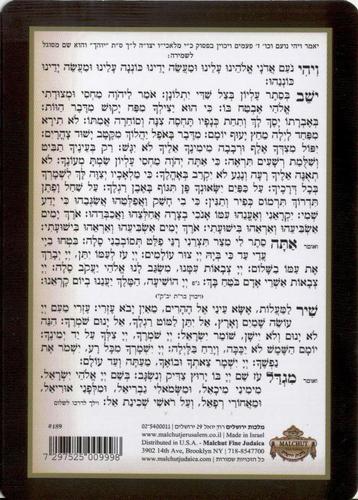 יאמר ויהי נועם וכו' ז' פעמים ויכוין בפסוק כ"י מלאכיו יצוה לך ס"ת "יוהך" והוא שם מסוגל
לשמירה:
וִיהִי נֹעַם אֲדֹנָי אֱלֹהֵינוּ עָלֵינוּ וּמַעֲשֵׂה יָדֵינוּ כּוֹנְנָה עָלֵינוּ וּמַעֲשֵׂה יָדֵינוּ
כּוֹנְנֵהוּ:
יֹשֵׁב בְּסֵתֶר עֶלְיוֹן בְּצֵל שַׁדַּי יִתְלוֹנָן: אֹמַר לַיהוָה מַחְסִי וּמְצוּדָתִי
אֱלֹהַי אֶבְטַח בּוֹ: כִּי הוּא יַצִּילְךָ מִפַּח יָקוּשׁ מִדֶּבֶר הַוּוֹת:
בְּאֶבְרָתוֹ יָסֶךְ לָךְ וְתַחַת כְּנָפָיו תֶּחְסֶה צִנָּה וְסֹחֵרָה אֲמִתּוֹ: לֹא תִירָא
מִפַּחַד לָיְלָה מֵחֵץ יָעוּף יוֹמָם: מִדֶּבֶר בָּאֹפֶל יַהֲלֹךְ מִקֶּטֶב יָשׁוּד צָהֳרָיִם:
יִפֹּל מִצִּדְּךָ אֶלֶף וּרְבָבָה מִימִינֶךָ אֵלֶיךָ לֹא יִגָּשׁ: רַק בְּעֵינֶיךָ תַבִּיט
וְשִׁלֻּמַת רְשָׁעִים תִּרְאֶה: כִּי אַתָּה יְהוָה מַחְסִי עֶלְיוֹן שַׂמְתָּ מְעוֹנֶךָ: לֹא
תְאֻנֶּה אֵלֶיךָ רָעָה וְנֶגַע לֹא יִקְרַב בְּאָהֳלֶךָ: כִּי מַלְאָכָיו יְצַוֶּה לָּךְ לִשְׁמָרְךָ
בְּכָל דְּרָכֶיךָ: עַל כַּפַּיִם יִשָּׂאוּנְךָ פֶּן תִּגּוֹף בָּאֶבֶן רַגְלֶךָ: עַל שַׁחַל וָפֶתֶן
תִּדְרוֹךְ תִּרְמוֹס כְּפִיר וְתַנִּין: כִּי בִי חָשַׁק וַאֲפַלְּטֵהוּ אֲשַׂגְּבֵהוּ כִּי יָדַע
שְׁמִי: יִקְרָאֵנִי וְאֶעֱנֵהוּ עִמּוֹ אָנֹכִי בְצָרָה אֲחַלְּצֵהוּ וַאֲכַבְּדֵהוּ: אֹרֶךְ יָמִים
אַשְׂבִּיעֵהוּ וְאַרְאֵהוּ בִּישׁוּעָתִי: אֹרֶךְ יָמִים אַשְׂבִּיעֵהוּ וְאַרְאֵהוּ בִּישׁוּעָתִי:
ואומר אַתָּה סֵתֶר לִי מִצַּר תִּצְּרֵנִי רָנֵּי פַלֵּט תְּסוֹבְבֵנִי סֶלָה: בִּטְחוּ בַיְיָ
עֲדֵי עַד כִּי בְּיָהּ יְיָ צוּר עוֹלָמִים: יְיָ עֹז לְעַמּוֹ יִתֵּן, יְיָ יְבָרֵךְ
אֶת עַמּוֹ בַשָּׁלוֹם: יְיָ צְבָאוֹת עִמָּנוּ, מִשְׂגָּב לָנוּ אֱלֹהֵי יַעֲקֹב סֶלָה: יְיָ
צְבָאוֹת אַשְׁרֵי אָדָם בֹּטֵחַ בָּךְ: יְיָ הוֹשִׁיעָה, הַמֶּלֶךְ יַעֲנֵנוּ בְיוֹם קָרְאֵנוּ:
שִׁיר לַמַּעֲלוֹת, אֶשָּׂא עֵינַי אֶל הֶהָרִים, מֵאַיִן יָבֹא עֶזְרִי: עֶזְרִי מֵעִם יְיָ
עֹשֵׂה שָׁמַיִם וָאָרֶץ. אַל יִתֵּן לַמּוֹט רַגְלֶךָ, אַל יָנוּם שֹׁמְרֶךָ: הִנֵּה
לֹא יָנוּם וְלֹא יִישָׁן, שׁוֹמֵר יִשְׂרָאֵל: יְיָ שֹׁמְרֶךָ, יְיָ צִלְּךָ עַל יַד יְמִינֶךָ:
יוֹמָם הַשֶּׁמֶשׁ לֹא יַכֶּכָּה, וְיָרֵחַ בַּלָּיְלָה: יְיָ יִשְׁמָרְךָ מִכָּל רָע, יִשְׁמֹר אֶת
נַפְשֶׁךָ: יְיָ יִשְׁמָר צֵאתְךָ וּבוֹאֶךָ, מֵעַתָּה וְעַד עוֹלָם:
ואומר מִגְדַּל עֹז שֵׁם יְיָ בּוֹ יָרוּץ צַדִּיק וְנִשְׂגָּב: בְּשֵׁם יְיָ אֱלֹהֵי יִשְׂרָאֵל,
מִימִינִי מִיכָאֵל, וּמִשְּׂמֹאלִי גַּבְרִיאֵל, וּמִלְּפָנַי אוּרִיאֵל,
וּמֵאֲחוֹרַי רְפָאֵל, וְעַל רֹאשִׁי שְׁכִינַת אֵל: וילך לדרכו לשלום
#189
7 297525 009998
מלכות ירושלים
02-5400011
www.malchutjerusalem.co.il • Made in Israel
Distributed in U.S.A. - Malchut Fine Judaica
3902 14th Ave, Brooklyn NY | 718-8547700
www.malchutjudaica.com | כל הזכויות שמורות
MALCHUT